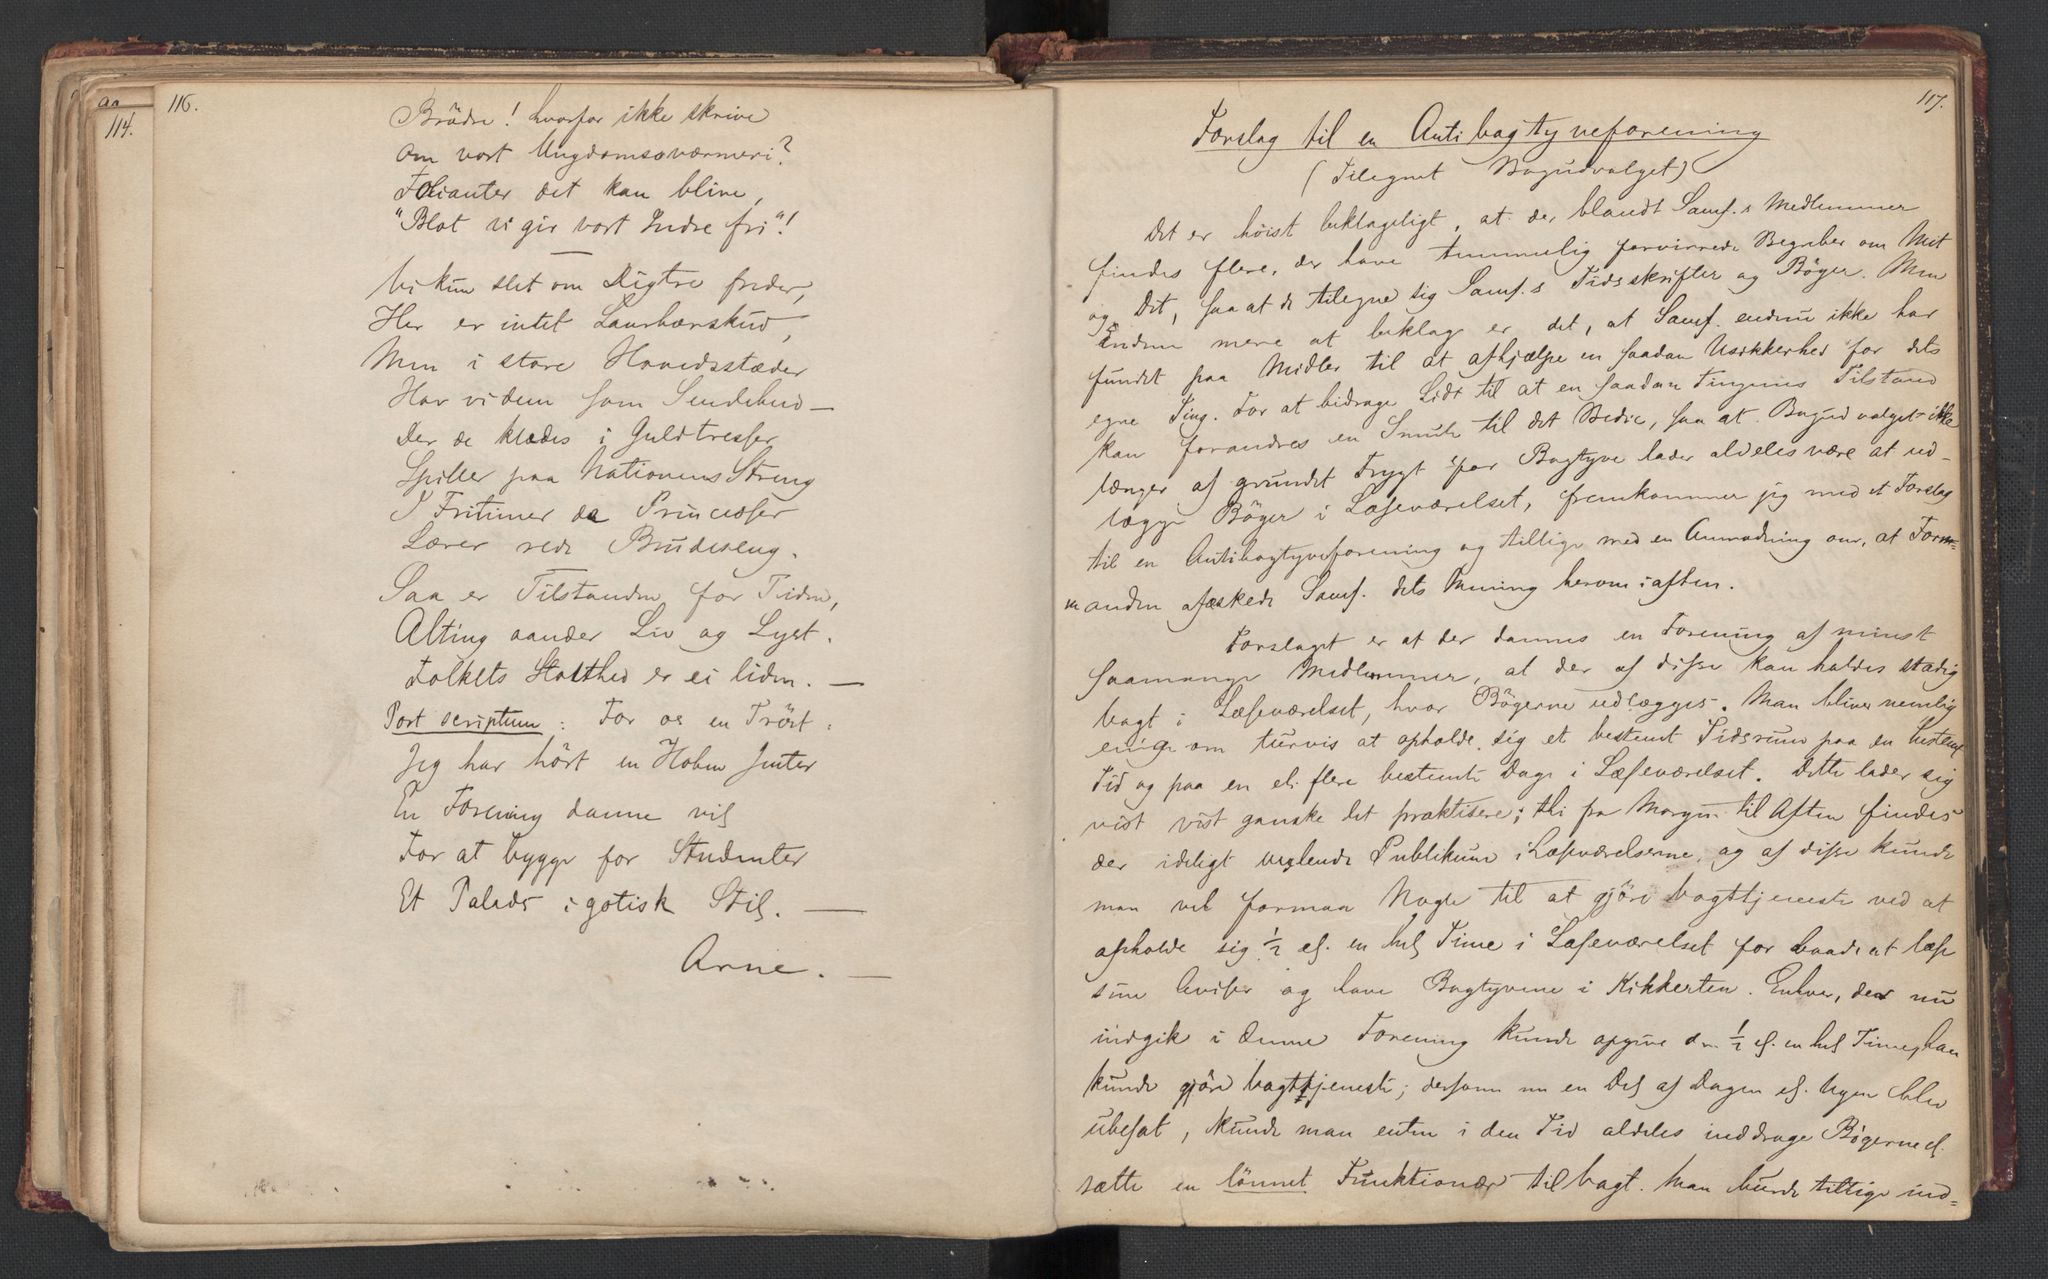 114.
116.
Brödre! hvorfor ikke skrive
Om vort Ungdomssværmeri?
Folianter det kan blive,
"Blot vi gir vort Indre fri"!
Vi kun slet om Digtre freder,
Her er intet Laurbærskud,
Men i store Hovedsstæder
Har vi dem som Sendebud —
Der de klædes i Guldtresser
Spiller paa Nationens Streng
I Fritimer de Princesser
Lærer rede Brudeseng.
Saa er Tilstanden for Tiden,
Alting aander Liv og Lyst.
Folkets Stolthed er ei liden. —
Post scriptum: For os en Tröst:
Jeg har hört en Hoben Jenter
En Forening danne vil
For at bygge for Studenter
Et Palads i gotisk Stil. —
Arne. —
117.
Forslag til en Antibogtyveforening
(Tilegnet Bogudvalget)
Det er höist beklageligt, at der blandt Samf.s Medlemmer
findes flere, der have temmelig forvirrede Begreber om Mit
og Dit, saa at de tilegne sig Samf.s Tidsskrifter og Böger. Men
endnu mere at beklage er det, at Samf. endnu ikke har
fundet paa Midler til at afhjælpe en saadan Usikkerhed for dets
egne Ting. For at bidrage Lidt til at en saadan Tingenes Tilstand
kan forandres en Smule til det Bedre, saa at Bogudvalget ikke
længer af grundet Frygt for Bogtyve lader aldeles være at ud-
lægge Böger i Læseværelset, fremkommer jeg med et Forslag
til en Antibogtyveforening og tillige med en Anmodning om, at Form-
manden afæskede Samf. dets Mening herom i aften.
Forslaget er at der dannes en Forening af mindst
saamange Medlemmer, at der af disse kan holdes stadig
vagt i Læseværelset, hvor Bögerne udlægges. Man bliver nemlig
enige om turvis at opholde sig et bestemt Tidsrum paa en bestemt
Tid og paa en el. flere bestemte Dage i Læseværelset. Dette lader sig
vist vist ganske let praktisere; thi fra Morgen til Aften findes
der ideligt vexlende Publikum i Læseværelserne, og af disse kunde
man vel formaa Nogle til at gjöre vagttjeneste ved at
opholde sig ½ el. en hel Time i Læseværelset for baade at læse
sine Aviser og have Bogtyvene i Kikkerten. Enhver, der nu
indgik i denne Forening kunde opgive den ½ el. en hel Time, han
kunde gjöre vagttjeneste; dersom nu en Del af Dagen el. Ugen blev
ubesat, kunde man enten i den Tid aldeles inddrage Bögerne el.
sætte en lönnet Funktionær til vagt. Man burde tillige ind-